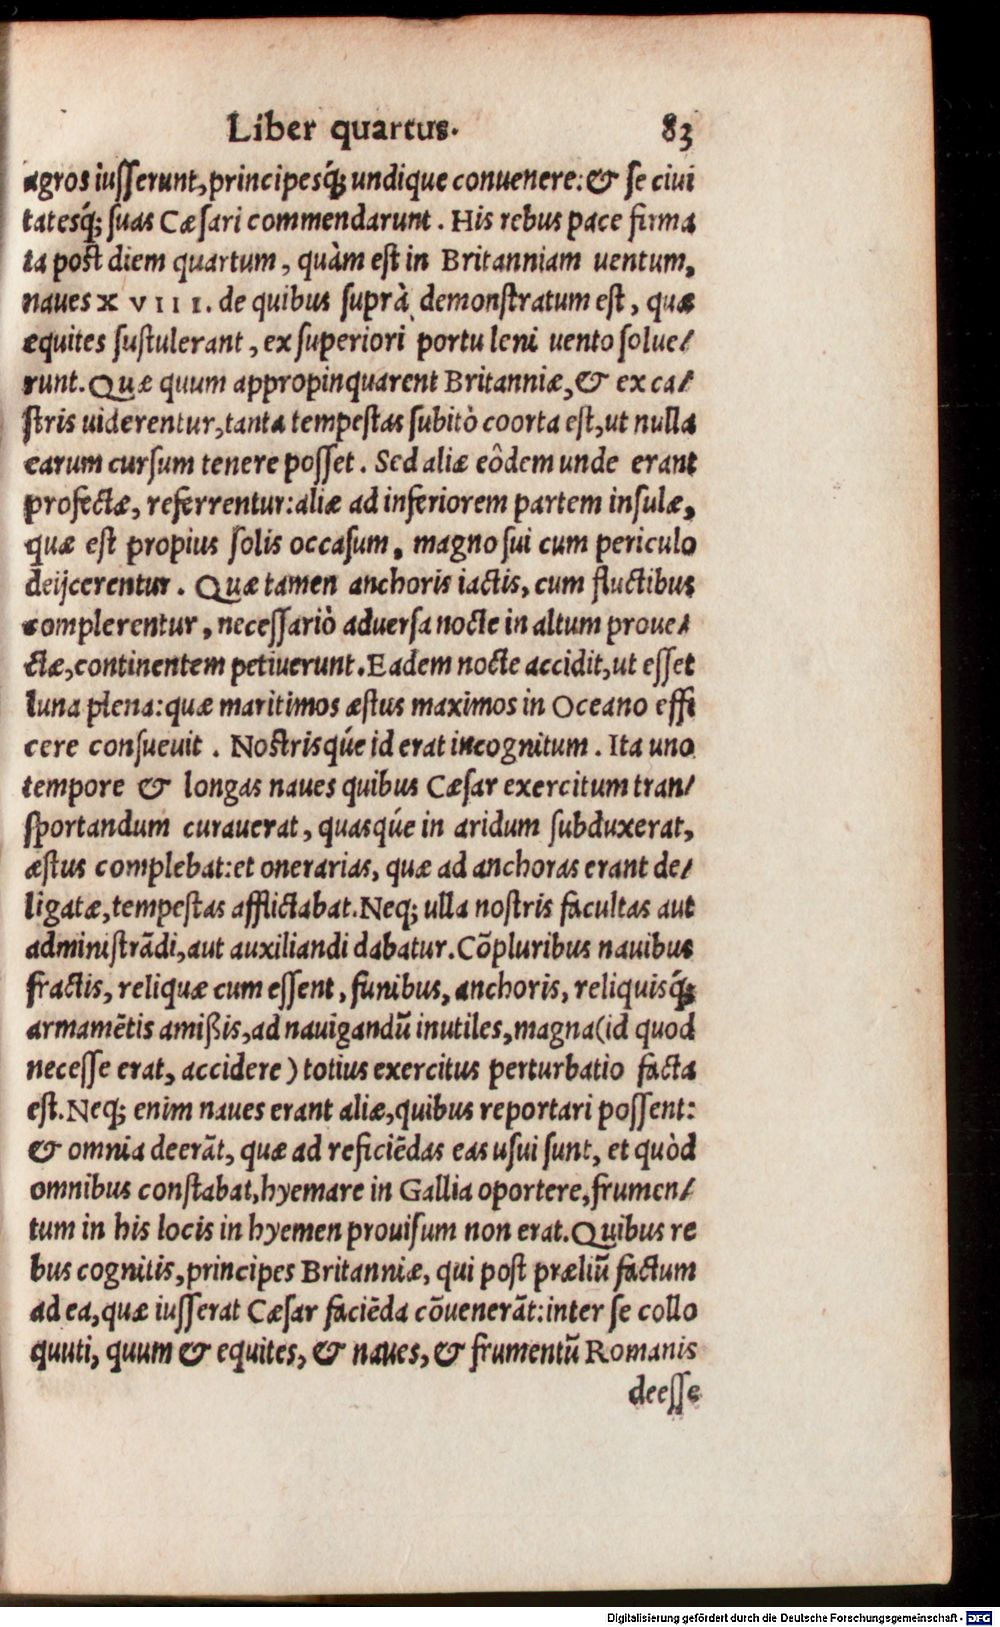 Liber quartus. 83
agros iusserunt, principesq́; undique conuenere: & se ciui
tatesq́; suas Cæsari commendarunt. His rebus pace firma
ta post diem quartum, quàm est in Britanniam uentum,
naues XVIII. de quibus suprà demonstratum est, quæ
equites sustulerant, ex superiori portu leni uento solue/
runt. Quæ quum appropinquarent Britanniæ, & ex ca/
stris uiderentur, tanta tempestas subitò coorta est, ut nulla
earum cursum tenere posset. Sed aliæ eôdem unde erant
profectæ, referrentur: aliæ ad inferiorem partem insulæ,
quæ est propius solis occasum, magno sui cum periculo
deijcerentur. Quæ tamen anchoris iactis, cum fluctibus
complerentur, necessariò aduersa nocte in altum proue/
ctæ, continentem petiuerunt. Eadem nocte accidit, ut esset
luna plena: quæ maritimos æstus maximos in Oceano effi
cere consueuit. Nostrisq́ue id erat incognitum. Ita uno
tempore & longas naues quibus Cæsar exercitum tran/
sportandum curauerat, quasq́ue in aridum subduxerat,
æstus complebat: et onerarias, quæ ad anchoras erant de/
ligatæ, tempestas afflictabat. Neq; ulla nostris facultas aut
administrãdi, aut auxiliandi dabatur. Cõpluribus nauibus
fractis, reliquæ cum essent, funibus, anchoris, reliquisq́;
armamẽtis amißis, ad nauigandũ inutiles, magna (id quod
necesse erat, accidere) totius exercitus perturbatio facta
est. Neq; enim naues erant aliæ, quibus reportari possent:
& omnia deerãt, quæ ad reficiẽdas eas usui sunt, et quòd
omnibus constabat, hyemare in Gallia oportere, frumen/
tum in his locis in hyemen prouisum non erat. Quibus re
bus cognitis, principes Britanniæ, qui post præliũ factum
ad ea, quæ iusserat Cæsar faciẽda cõuenerãt: inter se collo
quuti, quum & equites, & naues, & frumentũ Romanis
deesse
Digitalisierung gefördert durch die Deutsche Forschungsgemeinschaft - DFG